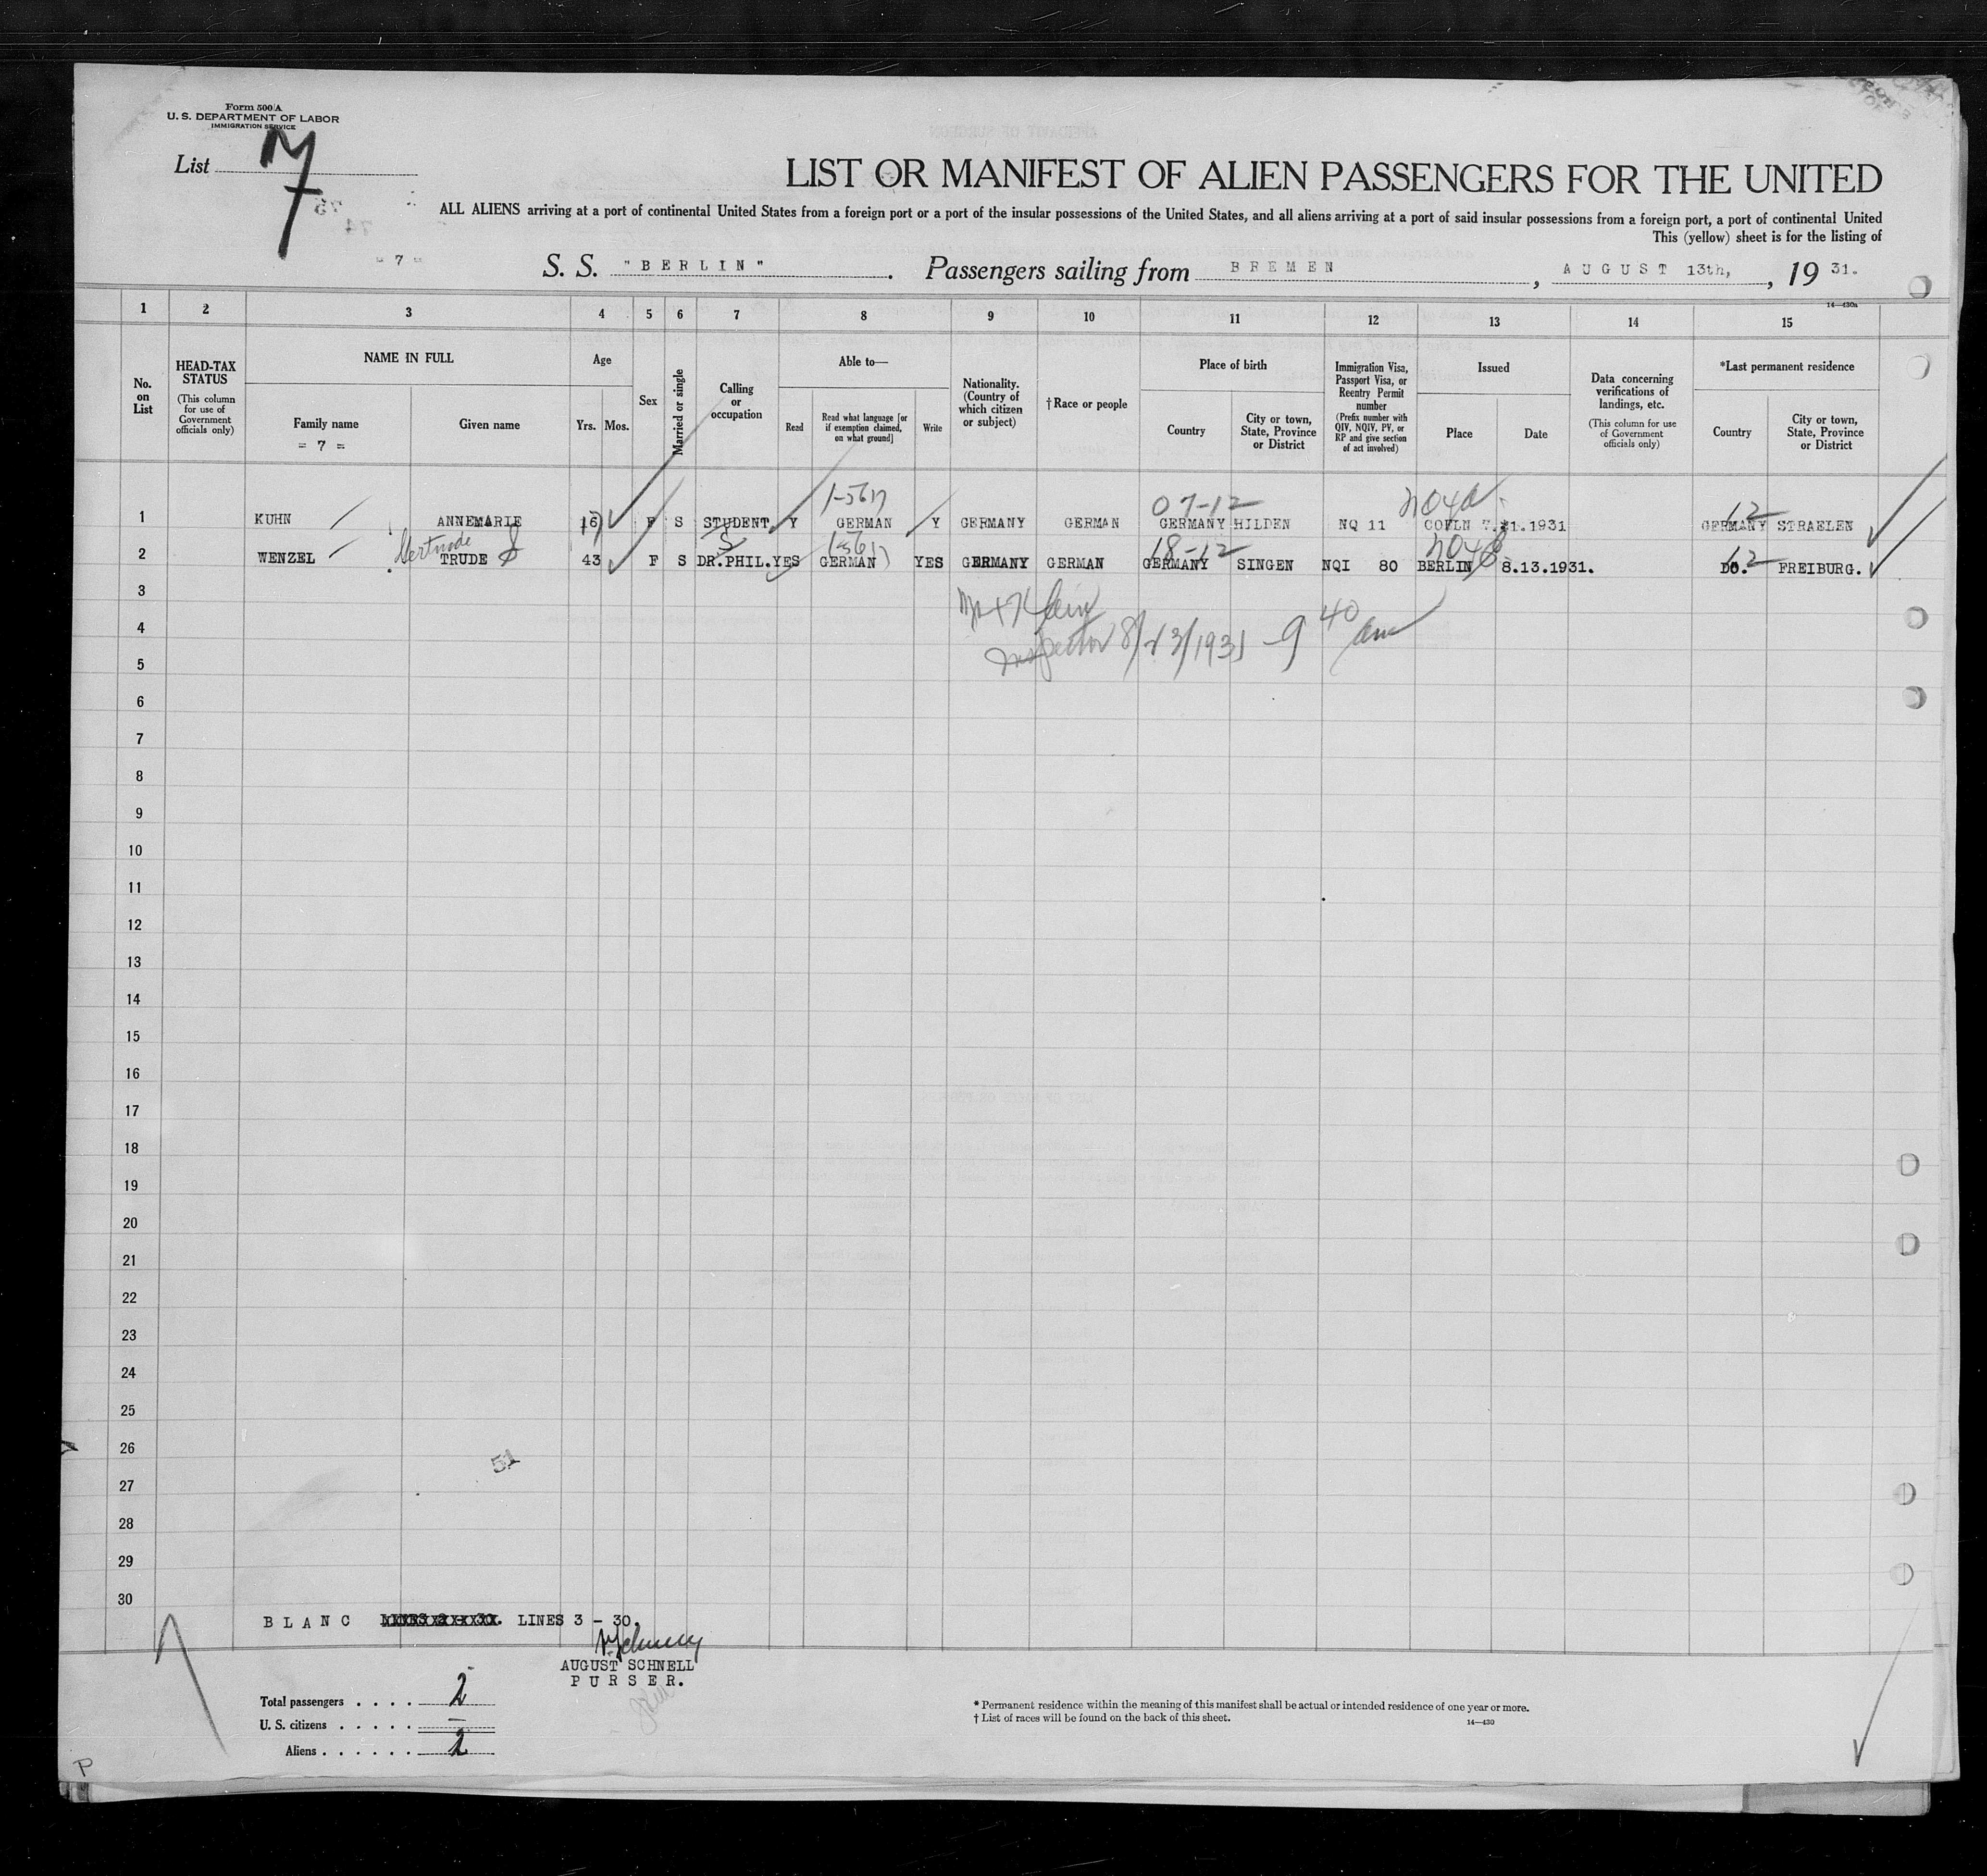 Form 500 A
U. S. DEPARTMENT OF LABOR
IMMIGRATION SERVICE
List 7
LIST OR MANIFEST OF ALIEN PASSENGERS FOR THE UNITED
ALL ALIENS arriving at a port of continental United States from a foreign port or a port of the insular possessions of the United States, and all aliens arriving at a port of said insular possessions from a foreign port, a port of continental United
This (yellow) sheet is for the listing of
= 7 =
S. S. "BERLIN". Passengers sailing from BREMEN, AUGUST 13th, 1931.
14—430a
1 2 3 4 5 6 7 8 9 10 11 12 13 14 15
No. on List
HEAD-TAX STATUS
(This column for use of Government officials only)
NAME IN FULL
Family name
= 7 =
Given name
Age
Yrs. Mos.
Sex
Married or single
Calling or occupation
Able to—
Read
Read what language [or if exemption claimed, on what ground]
Write
Nationality. (Country of which citizen or subject)
†Race or people
Place of birth
Country
City or town, State, Province or District
Immigration Visa, Passport Visa, or Reentry Permit number
(Prefix number with QIV, NQIV, PV, or RP and give section of act involved)
Issued
Place
Date
Data concerning verifications of landings, etc.
(This column for use of Government officials only)
*Last permanent residence
Country
City or town, State, Province or District
07-12 12
1 KUHN ANNEMARIE F S STUDENT Y GERMAN Y GERMANY GERMAN GERMANY HILDEN NQ 11 1931 GERMANY STRAELEN
Gertrude S 18-12 12
2 WENZEL TRUDE 43 F S DR.PHIL. YES GERMAN YES GERMANY GERMAN GERMANY SINGEN NQI 80 BERLIN 8.13.1931. DO. FREIBURG.
3
Inspector 8/13/1931 - 9 40 am
4
5
6
7
8
9
10
11
12
13
14
15
16
17
18
19
20
21
22
23
24
25
26
51
27
28
29
30
BLANC LINES 3 - 30.
AUGUST SCHNELL
PURSER.
Total passengers . . . . 2
U. S. citizens . . . . . —
Aliens . . . . . . 2
* Permanent residence within the meaning of this manifest shall be actual or intended residence of one year or more.
† List of races will be found on the back of this sheet.
14—430
P